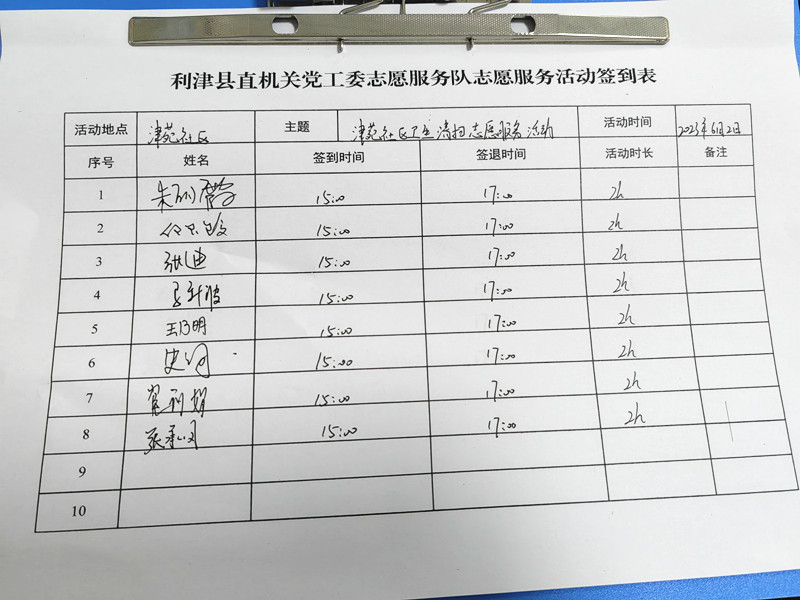 利津县直机关党工委志愿服务队志愿服务活动签到表
活动地点 津苑社区 主题 津苑社区卫生清扫志愿服务活动 活动时间 2023年6月2日
序号 姓名 签到时间 签退时间 活动时长 备注
1 15:00 17:00 2h
2 15:00 17:00 2h
3 张迪 15:00 17:00 2h
4 15:00 17:00 2h
5 王乃明 15:00 17:00 2h
6 15:00 17:00 2h
7 15:00 17:00 2h
8 15:00 17:00 2h
9
10